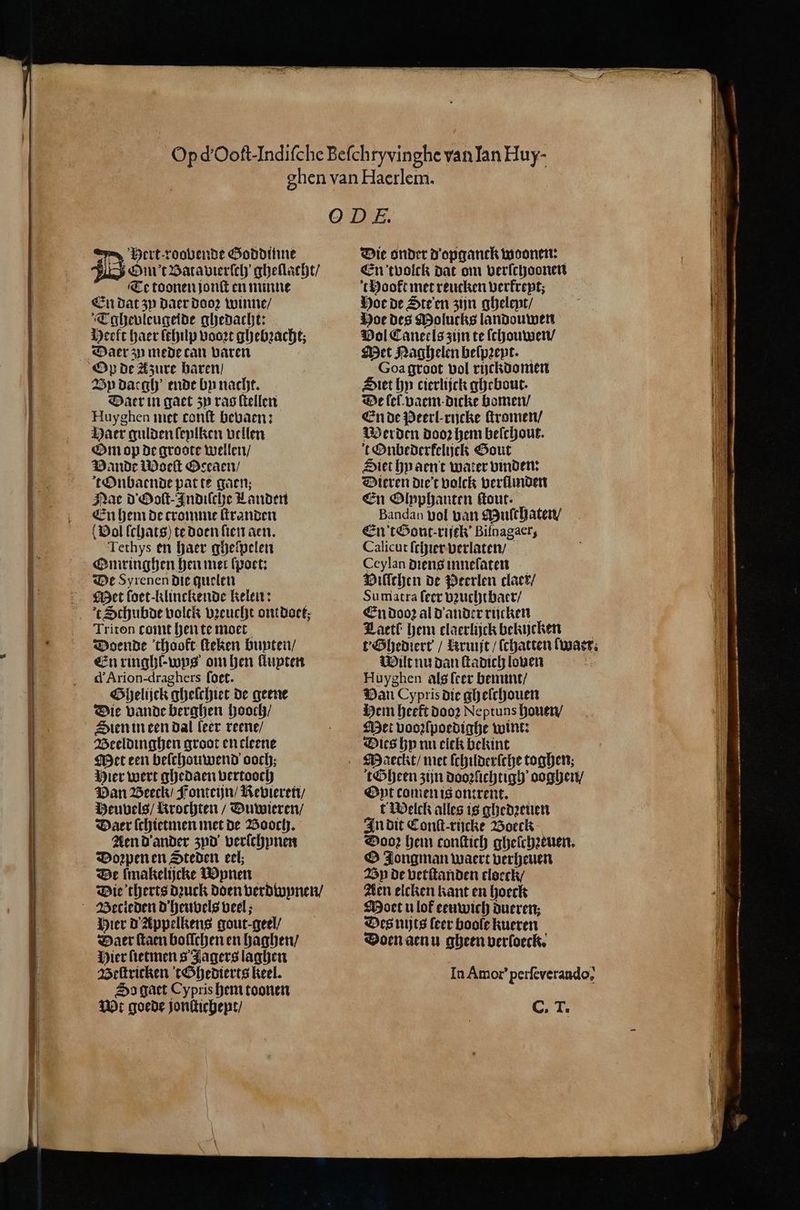 Op d'Ooſt-Indiſche Beſchryvinghe van Ian Huy-
ghen van Haerlem.
ODE.
'Hert-roovende Goddinne
Om 't Batavierſch' gheſlacht/
Te toonen jonſt en minne
En dat zy daer door winne/
'Tghevleugelde ghedacht:
Heeft haer ſchilp voort ghebracht;
Daer zy mede can varen
Op de Azure baren/
By dargh' ende by nacht.
Daer in gaet zy ras ſtellen
Huyghen met conſt bevaen:
Haer gulden ſeylken vellen
Om op de groote wellen/
Vande Woeſt Oceaen/
'tOnbaende pat te gaen;
Nae d'Ooſt-Indiſche Landen
En hem de cromme ſtranden
(Vol ſchats) te doen ſien aen.
Tethys en haer gheſpelen
Omringhen hen met ſpoet:
De Syrenen die quelen
Met ſoet-klinckende kelen:
't Schubde volck vreucht ontdoet;
Triton comt hen te moet
Doende 'thooft ſteken buyten/
En ringhſ-wys' om hen ſluyten
d'Arion-draghers ſoet.
Ghelijck gheſchiet de geene
Die vande berghen hooch/
Sien in een dal ſeer reene/
Beeldinghen groot en cleene
Met een beſchouwend' ooch;
Hier wert ghedaen vertooch
Van Beeck/ Fonteijn/ Revieren/
Heuvels/ Krochten / Duwieren/
Daer ſchietmen met de Booch.
Aen d'ander zyd' verſchynen
Dorpen en Steden eel;
De ſmakelijcke Wynen
Die 'therts druck doen verdwynen/
Becleden d'heuvels veel;
Hier d'Appelkens gout-geel/
Daer ſtaen boſſchen en haghen/
Hier ſietmen s'Jagers laghen
Beſtricken 'tGhedierts keel.
So gaet Cypris hem toonen
Wt goede jonſticheyt/
Die onder d'opganck woonen:
En 'tvolck dat om verſchoonen
'tHooft met reucken verkreyt;
Hoe de Ste'en zijn gheleyt/
Hoe des Molucks landouwen
Vol Caneels zijn te ſchouwen/
Met Naghelen beſpreyt.
Goa groot vol rijckdomen
Siet hy cierlijck ghebout.
De ſeſ-vaem-dicke bomen/
En de Peerl-rijcke ſtromen/
Werden door hem beſchout.
't Onbederfelijck Gout
Siet hy aen't water vinden:
Dieren die't volck verſlinden
En Olyphanten ſtout.
Bandan vol van Muſchaten/
En 'tGout-rijck' Biſnagaer,
Calicut ſchier verlaten/
Ceylan diens inneſaten
Viſſchen de Peerlen claer/
Sumatra ſeer vruchtbaer/
En door al d'ander rijcken
Laetſ' hem claerlijck bekijcken
t'Ghediert' / kruijt / ſchatten ſwaer.
Wilt nu dan ſtadich loven
Huyghen als ſeer bemint/
Van Cypris die gheſchouen
Hem heeft door Neptuns houen/
Met voorſpoedighe wint:
Dies hy nu elck bekint
Maeckt/ met ſchilderſche toghen;
'tGheen zijn doorſichtigh' ooghen/
Oyt comen is ontrent.
t'Welck alles is ghedreuen
In dit Conſt-rijcke Boeck
Door hem conſtich gheſchreuen.
O Jongman waert verheuen
By de verſtanden cloeck/
Aen elcken kant en hoeck
Moet u lof eeuwich dueren;
Des nijts ſeer booſe kueren
Doen aen u gheen verſoeck.
In Amor' perſeverando.
C. T.